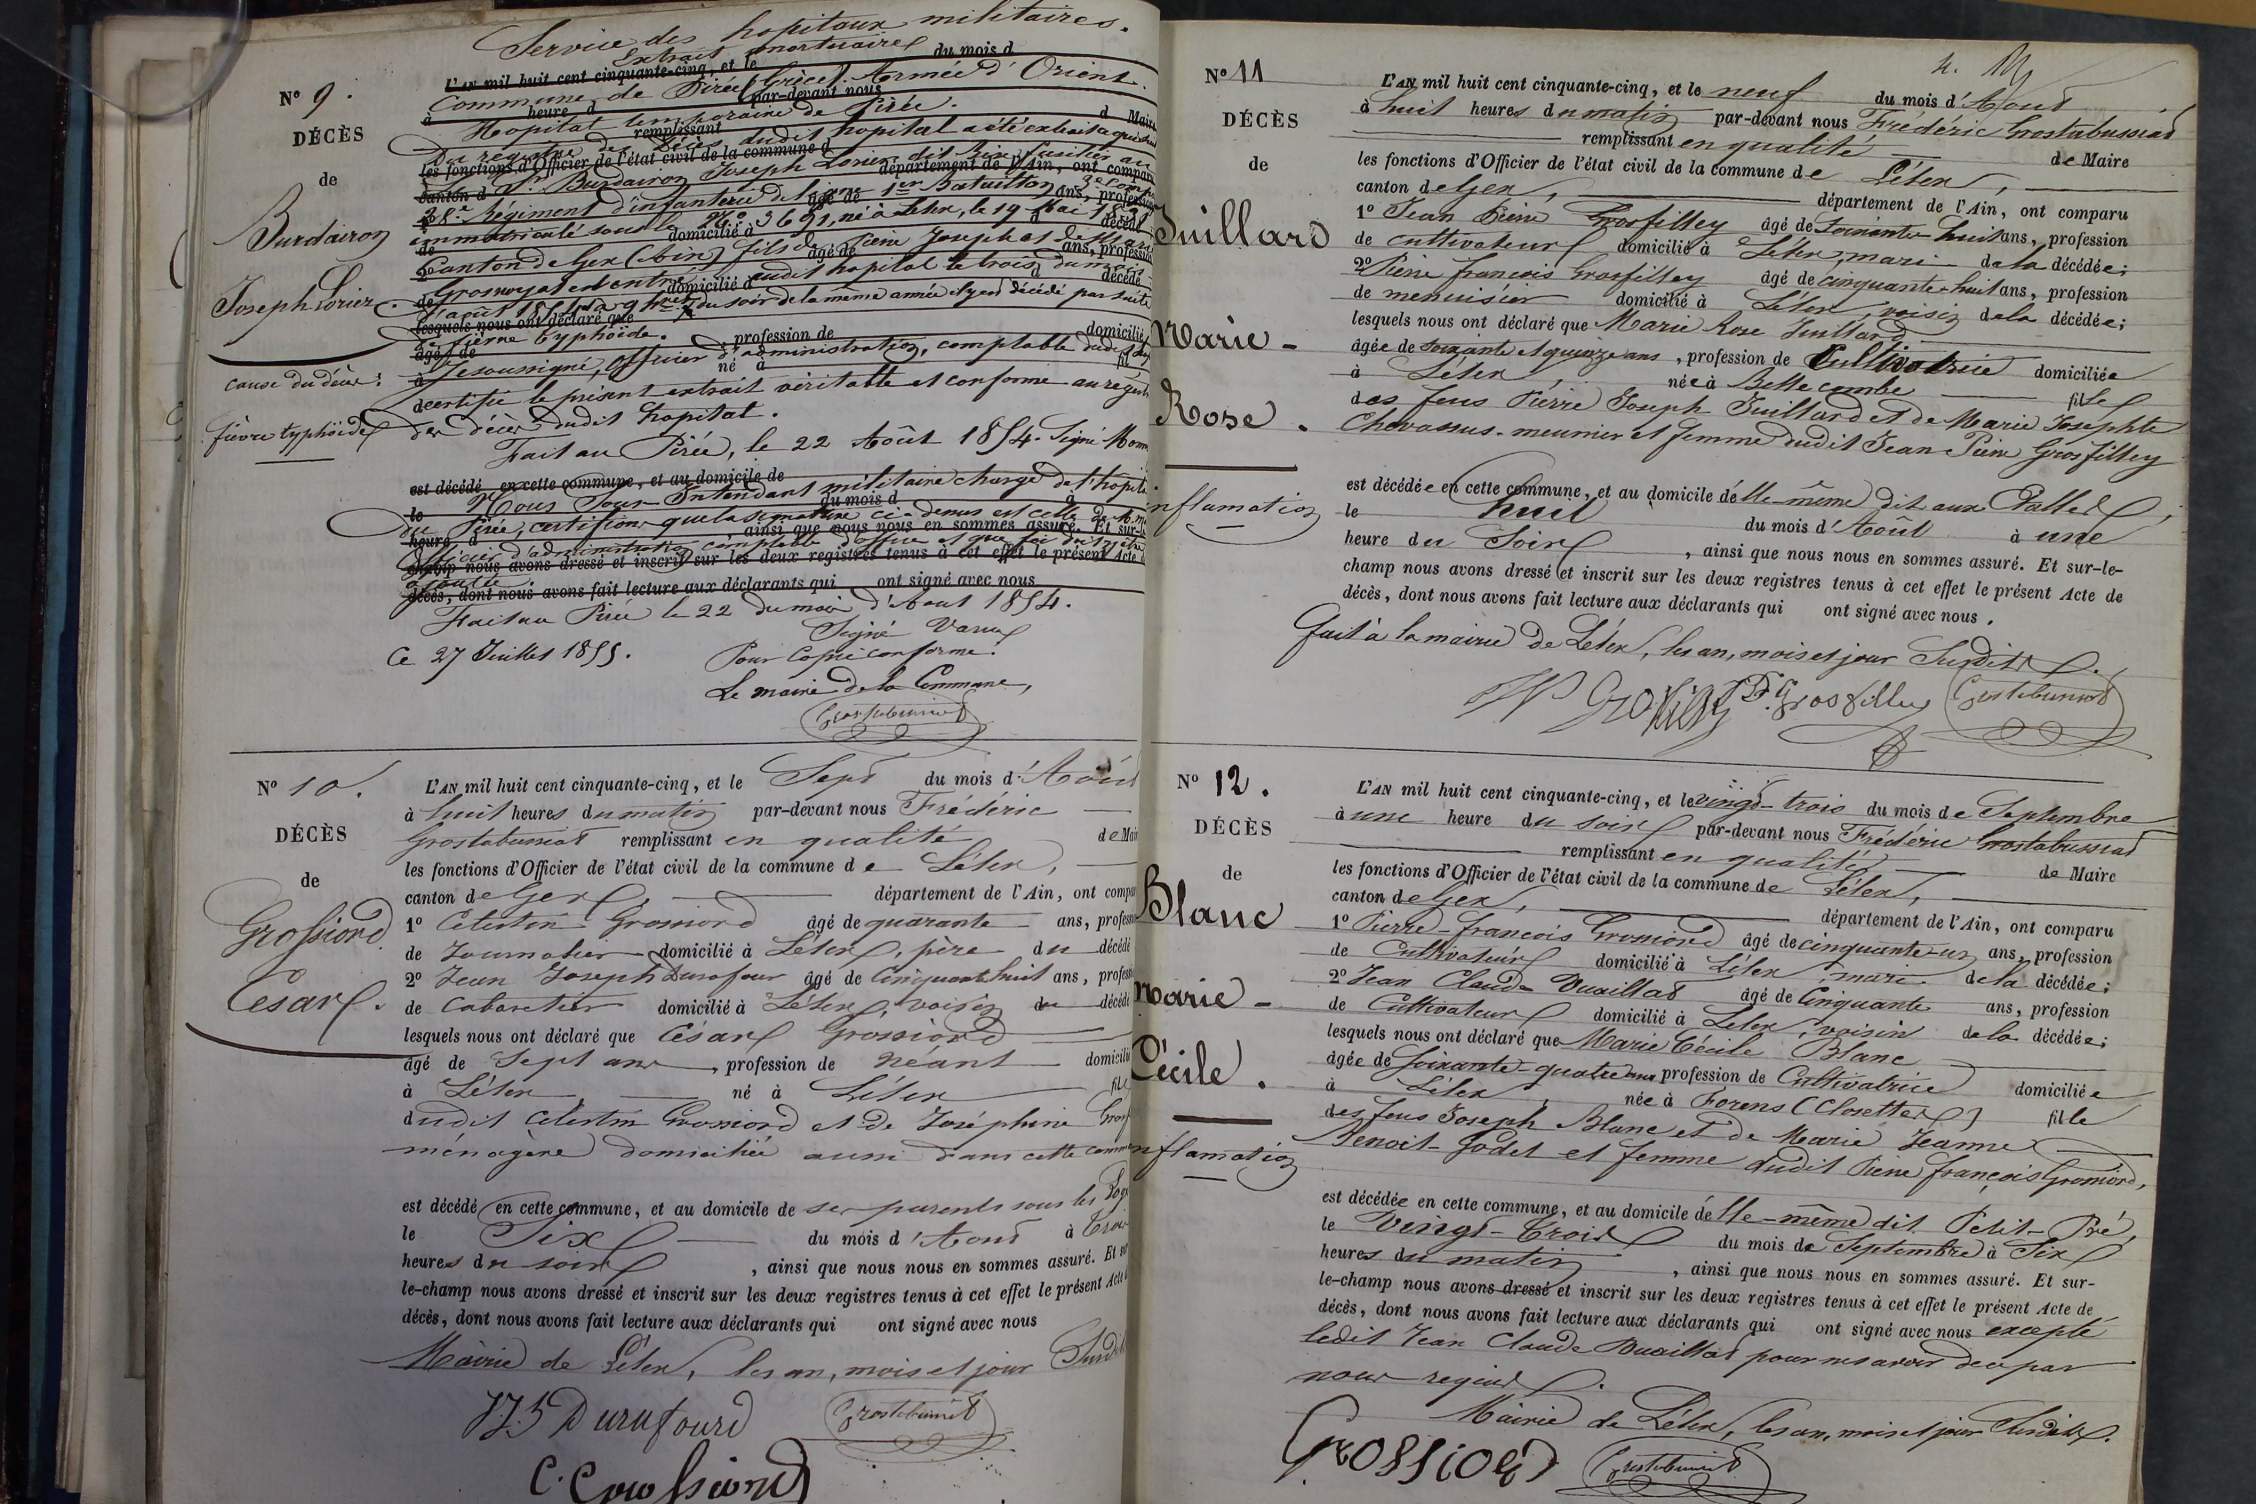 Service des hopitaux militaires.
Extrait mortuaire
L'AN mil huit cent cinquante-cinq, et le du mois d
Nº 9.
Commune de Pirée (Grèce). Armée d'Orient.
à heure d par-devant nous
DÉCÈS
Hopital temporaire de Pirée.
remplissant d Maire
de
Du registre des Décès dudit hopital a été extrait
les fonctions d'Officier de l'état civil de la commune d
Burdairon Joseph dit fusilier au
canton d département de l'Ain, ont comparu
Régiment d'infanterie de ligne 1er Bataillon
âgé de ans, profession
Burdairon
immatriculé sous le Nº 3691, né à Lélex, le 19 Mai
de domicilié à décédé
Canton de Gex (Ain) fils de Pierre Joseph et de
âgé de ans, profession
Joseph
entré audit hopital le trois du mois
de domicilié à décédé
d'août du soir de la même année et y est décédé par suite
lesquels nous ont déclaré que
de fièvre typhoïde.
âgé de , profession de domicilié
cause du décès:
Je soussigné, officier d'administration, comptable dudit
à né à fil
fièvre typhoïde
certifie le présent extrait véritable et conforme au registre
des décès dudit hopital.
Fait au Pirée, le 22 Août 1854. Signé
est décédé en cette commune, et au domicile de
Nous Sous-Intendant militaire chargé de l'hopital
le du mois d à
du Pirée, certifions que la signature ci-dessus est celle de M.
heure d ainsi que nous nous en sommes assuré. Et sur-le-
officier d'administration comptable et que foi doit y être
champ nous avons dressé et inscrit sur les deux registres tenus à cet effet le présent Acte
ajoutée.
décès, dont nous avons fait lecture aux déclarants qui ont signé avec nous
Fait au Pirée le 22 du mois d'Aout 1854.
Signé
Ce 27 Juillet 1855. Pour Copie conforme.
Le maire de la Commune,
Grostabussiat
Nº 10.
L'AN mil huit cent cinquante-cinq, et le Sept du mois d'Août
à huit heures du matin par-devant nous Frédéric
DÉCÈS
Grostabussiat remplissant en qualité de Maire
les fonctions d'Officier de l'état civil de la commune de Lélex,
de
canton de Gex, département de l'Ain, ont comparu
Grossiord
1º Célestin Grossiord âgé de quarante ans, profession
de Journalier domicilié à Lélex, père du décédé
2º Jean Joseph Durafour âgé de Cinquante huit ans, profession
César.
de Cabaretier domicilié à Lélex, voisin du décédé
lesquels nous ont déclaré que César Grossiord
âgé de Sept ans, profession de néant domicilié
à Lélex né à Lélex fils
dudit Célestin Grossiord et de Joséphine
ménagère domiciliée aussi dans cette commune
est décédé en cette commune, et au domicile de ses parents sous les
le Six du mois d'Août à trois
heures du soir, ainsi que nous nous en sommes assuré. Et sur
le-champ nous avons dressé et inscrit sur les deux registres tenus à cet effet le présent Acte
décès, dont nous avons fait lecture aux déclarants qui ont signé avec nous
Mairie de Lélex, les an, mois et jour Susdits
JJ Durafourd Grostabussiat
C. Grossiord
Nº 11
L'AN mil huit cent cinquante-cinq, et le neuf du mois d'Aout
à huit heures du matin par-devant nous Frédéric Grostabussiat
DÉCÈS
remplissant en qualité de Maire
de
les fonctions d'Officier de l'état civil de la commune de Lélex,
canton de Gex, département de l'Ain, ont comparu
Juillard
1º Jean Pierre Grosfilley âgé de Soixante-huit ans, profession
de cultivateur domicilié à Lélex, mari de la décédée;
2º Pierre François Grosfilley âgé de cinquante-huit ans, profession
de menuisier domicilié à Lélex, voisin de la décédée;
Marie-
lesquels nous ont déclaré que Marie Rose Juillard
âgée de soixante et quinze ans, profession de Cultivatrice domiciliée
à Lélex, née à Bellecombe fille
Rose.
des feus Pierre Joseph Juillard et de Marie Josephte
Chevassus-meunier et femme dudit Jean Pierre Grosfilley
inflamation
est décédée en cette commune, et au domicile d'elle-même dit aux
le huit du mois d'Août à une
heure du Soir, ainsi que nous nous en sommes assuré. Et sur-le-
champ nous avons dressé et inscrit sur les deux registres tenus à cet effet le présent Acte de
décès, dont nous avons fait lecture aux déclarants qui ont signé avec nous.
Fait à la mairie de Lélex, les an, mois et jour Susdits.
Grosfilley Grostabussiat
Nº 12.
L'AN mil huit cent cinquante-cinq, et le vingt-trois du mois de Septembre
à une heure du soir par-devant nous Frédéric Grostabussiat
DÉCÈS
remplissant en qualité de Maire
de
les fonctions d'Officier de l'état civil de la commune de Lélex,
canton de Gex, département de l'Ain, ont comparu
Blanc
1º Pierre-François Grossiord âgé de cinquante-un ans, profession
de Cultivateur domicilié à Lélex mari de la décédée;
2º Jean Claude Vuaillat âgé de Cinquante ans, profession
Marie-
de Cultivateur domicilié à Lélex, voisin de la décédée;
lesquels nous ont déclaré que Marie Cécile Blanc
Cécile.
âgée de Soixante-quatre ans profession de Cultivatrice domiciliée
à Lélex, née à Forens (Closettes) fille
des feus Joseph Blanc et de Marie Jeanne
inflamation
Benoit-Godet et femme dudit Pierre François Grossiord,
est décédée en cette commune, et au domicile d'elle-même dit Petit-Pré,
le Vingt-trois du mois de Septembre à Six
heures du matin, ainsi que nous nous en sommes assuré. Et sur-
le-champ nous avons dressé et inscrit sur les deux registres tenus à cet effet le présent Acte de
décès, dont nous avons fait lecture aux déclarants qui ont signé avec nous excepté
ledit Jean Claude Vuaillat pour ne savoir de ce par
nous requis.
Mairie de Lélex, les an, mois et jour Susdits.
Grossiord Grostabussiat